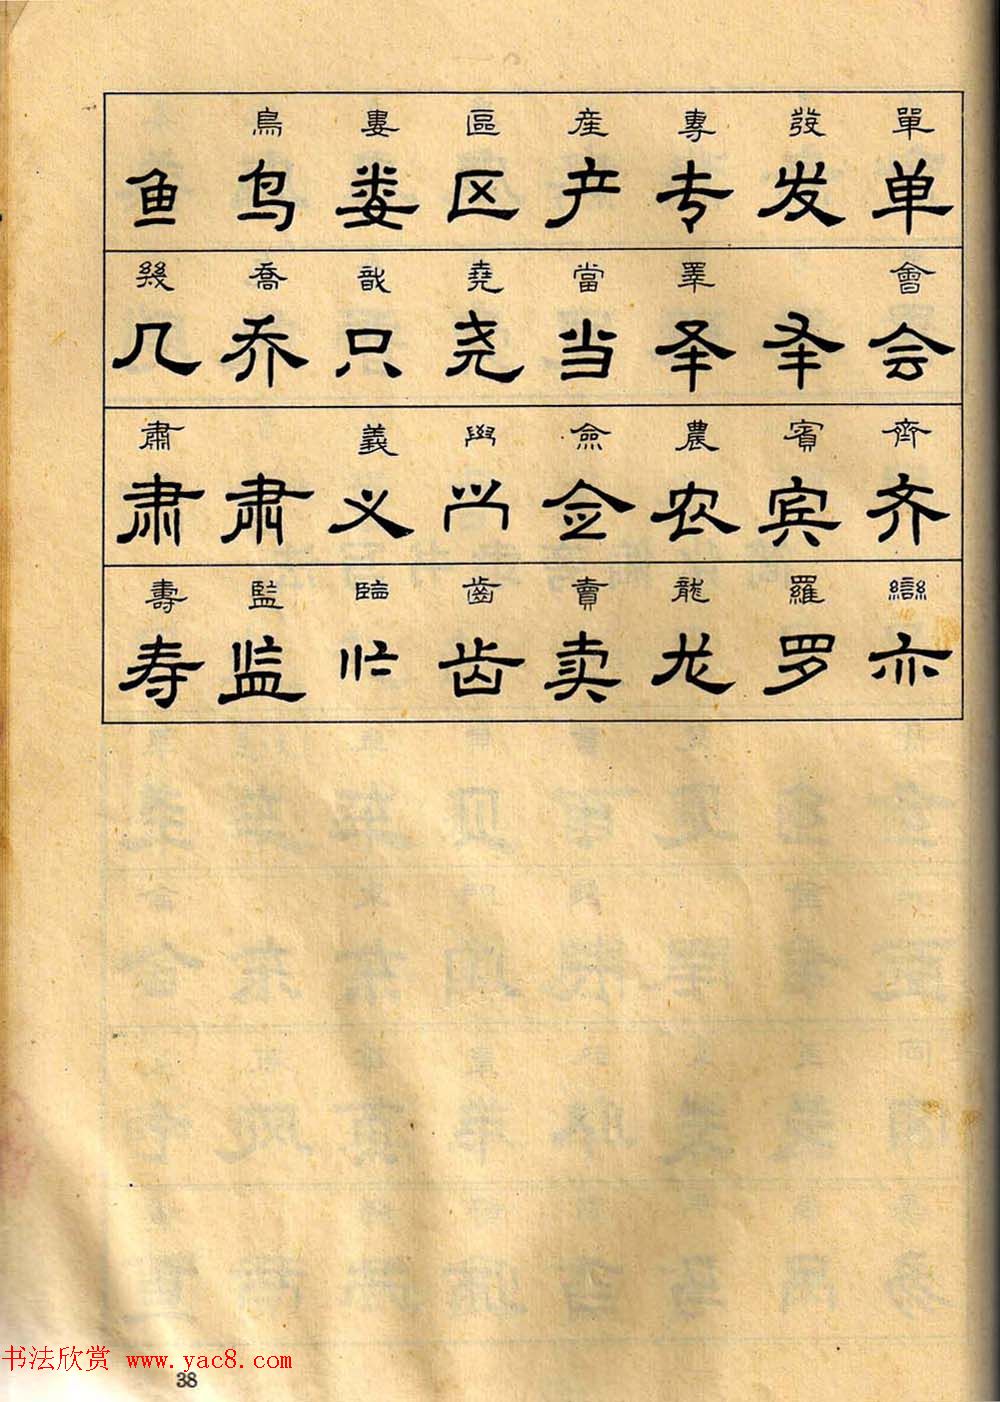 單 發 專 産 區 婁 鳥
单 发 专 产 区 娄 鸟 鱼
會 睪 當 堯 戠 喬 幾
会 𠬤 𠬤 当 尧 只 乔 几
齊 賓 農 僉 𦥯 義 肅
齐 宾 农 佥 义 肃 肃
䜌 羅 龍 賣 齒 監 壽
亦 罗 龙 卖 齿 监 寿
书法欣赏 www.yac8.com
38